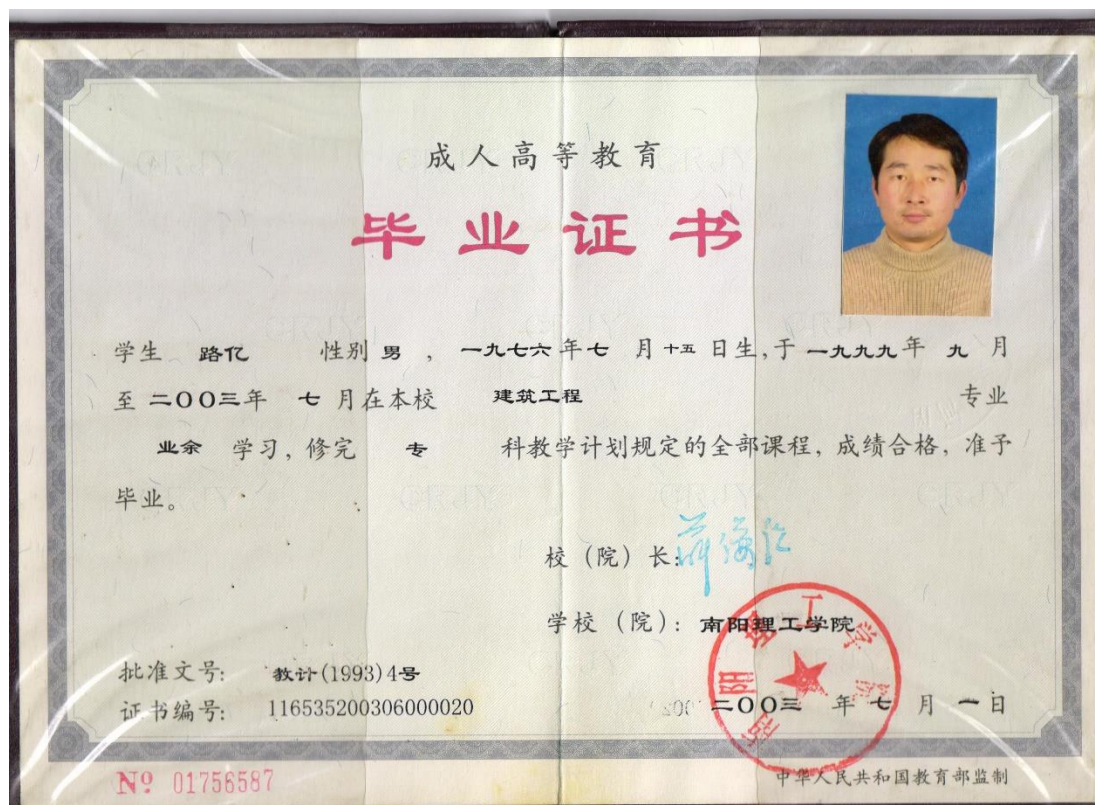 成人高等教育
毕业证书
学生 路亿 性别 男 , 一九七六 年 七 月 十五 日生,于 一九九九 年 九 月
至 二OO三 年 七 月在本校 建筑工程 专业
业余 学习,修完 专 科教学计划规定的全部课程,成绩合格,准予
毕业。
校(院)长:
学校(院): 南阳理工学院
南阳理工学院
批准文号: 教计(1993)4号
证书编号: 116535200306000020
二OO三 年 七 月 一 日
Nº 01756587
中华人民共和国教育部监制